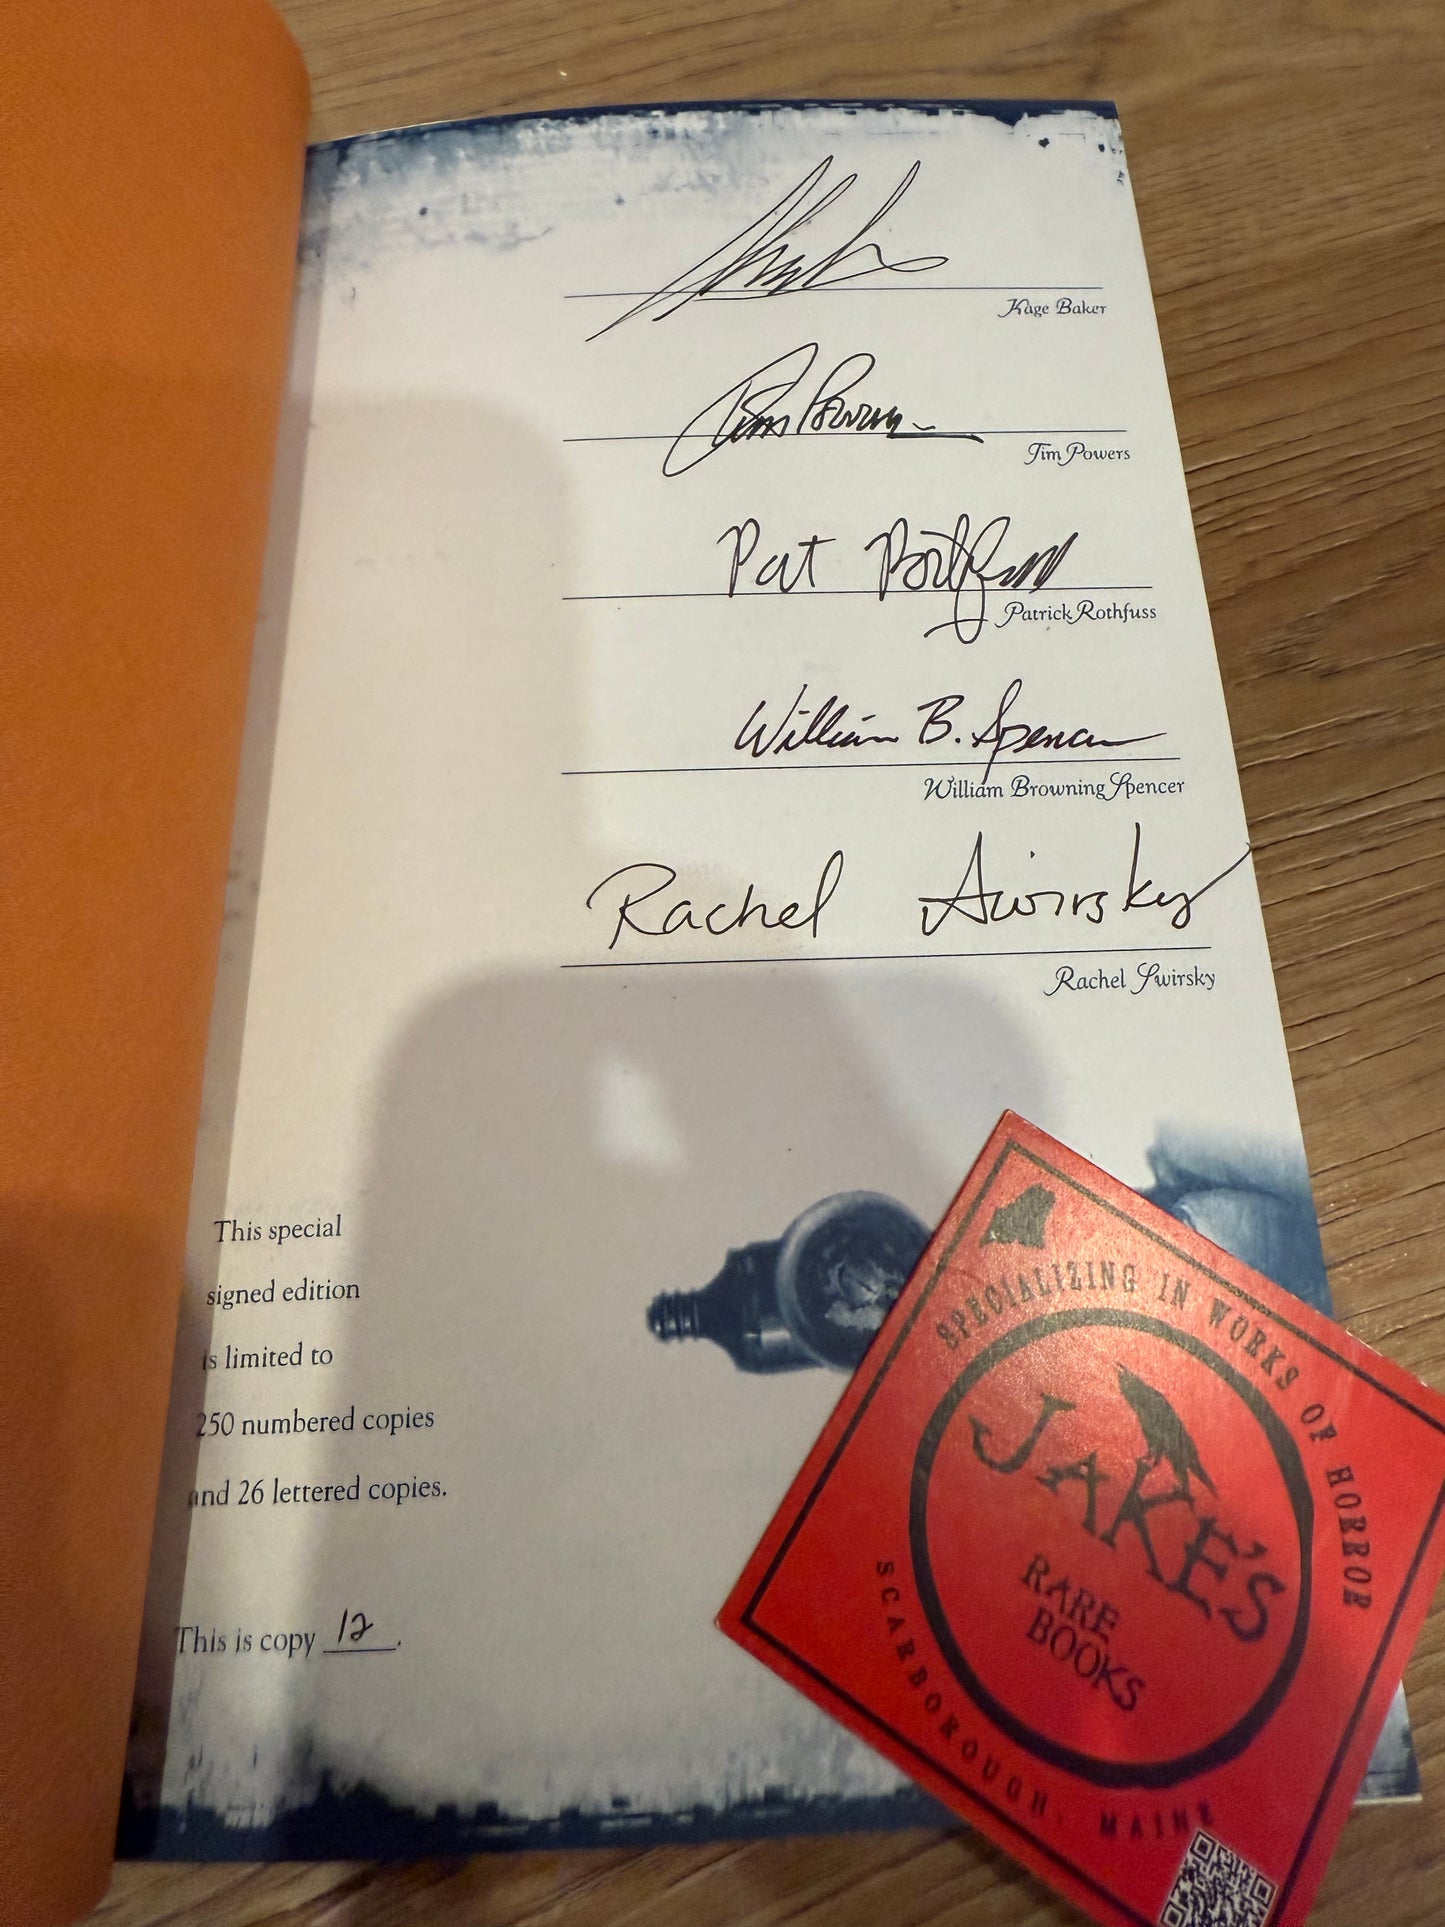 Kage Baker
Tim Powers
Tim Powers
Pat Rothfuss
Patrick Rothfuss
William B. Spencer
William Browning Spencer
Rachel Swirsky
Rachel Swirsky
This special
signed edition
is limited to
250 numbered copies
and 26 lettered copies.
This is copy 12.
SPECIALIZING IN WORKS OF HORROR
JAKE'S
RARE
BOOKS
SCARBOROUGH, MAINE